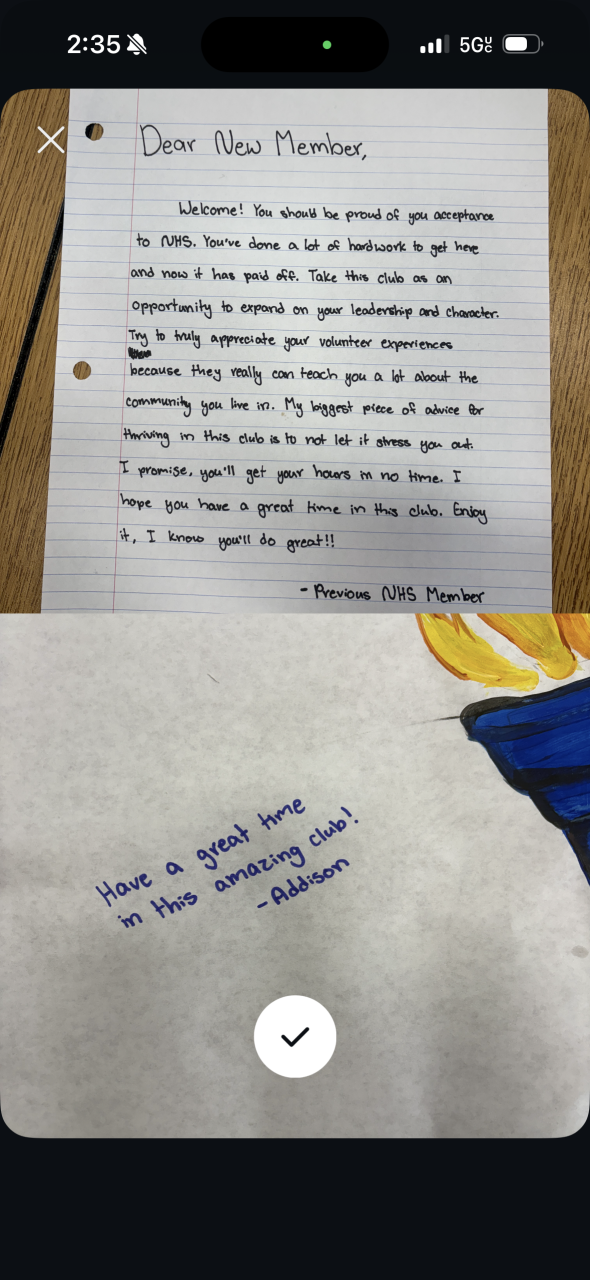 2:35
5G UC
Dear New Member,
Welcome! You should be proud of you acceptance
to NHS. You've done a lot of hardwork to get here
and now it has paid off. Take this club as an
opportunity to expand on your leadership and character.
Try to truly appreciate your volunteer experiences
because they really can teach you a lot about the
community you live in. My biggest piece of advice for
thriving in this club is to not let it stress you out.
I promise, you'll get your hours in no time. I
hope you have a great time in this club. Enjoy
it, I know you'll do great!!
- Previous NHS Member
Have a great time
in this amazing club!
- Addison